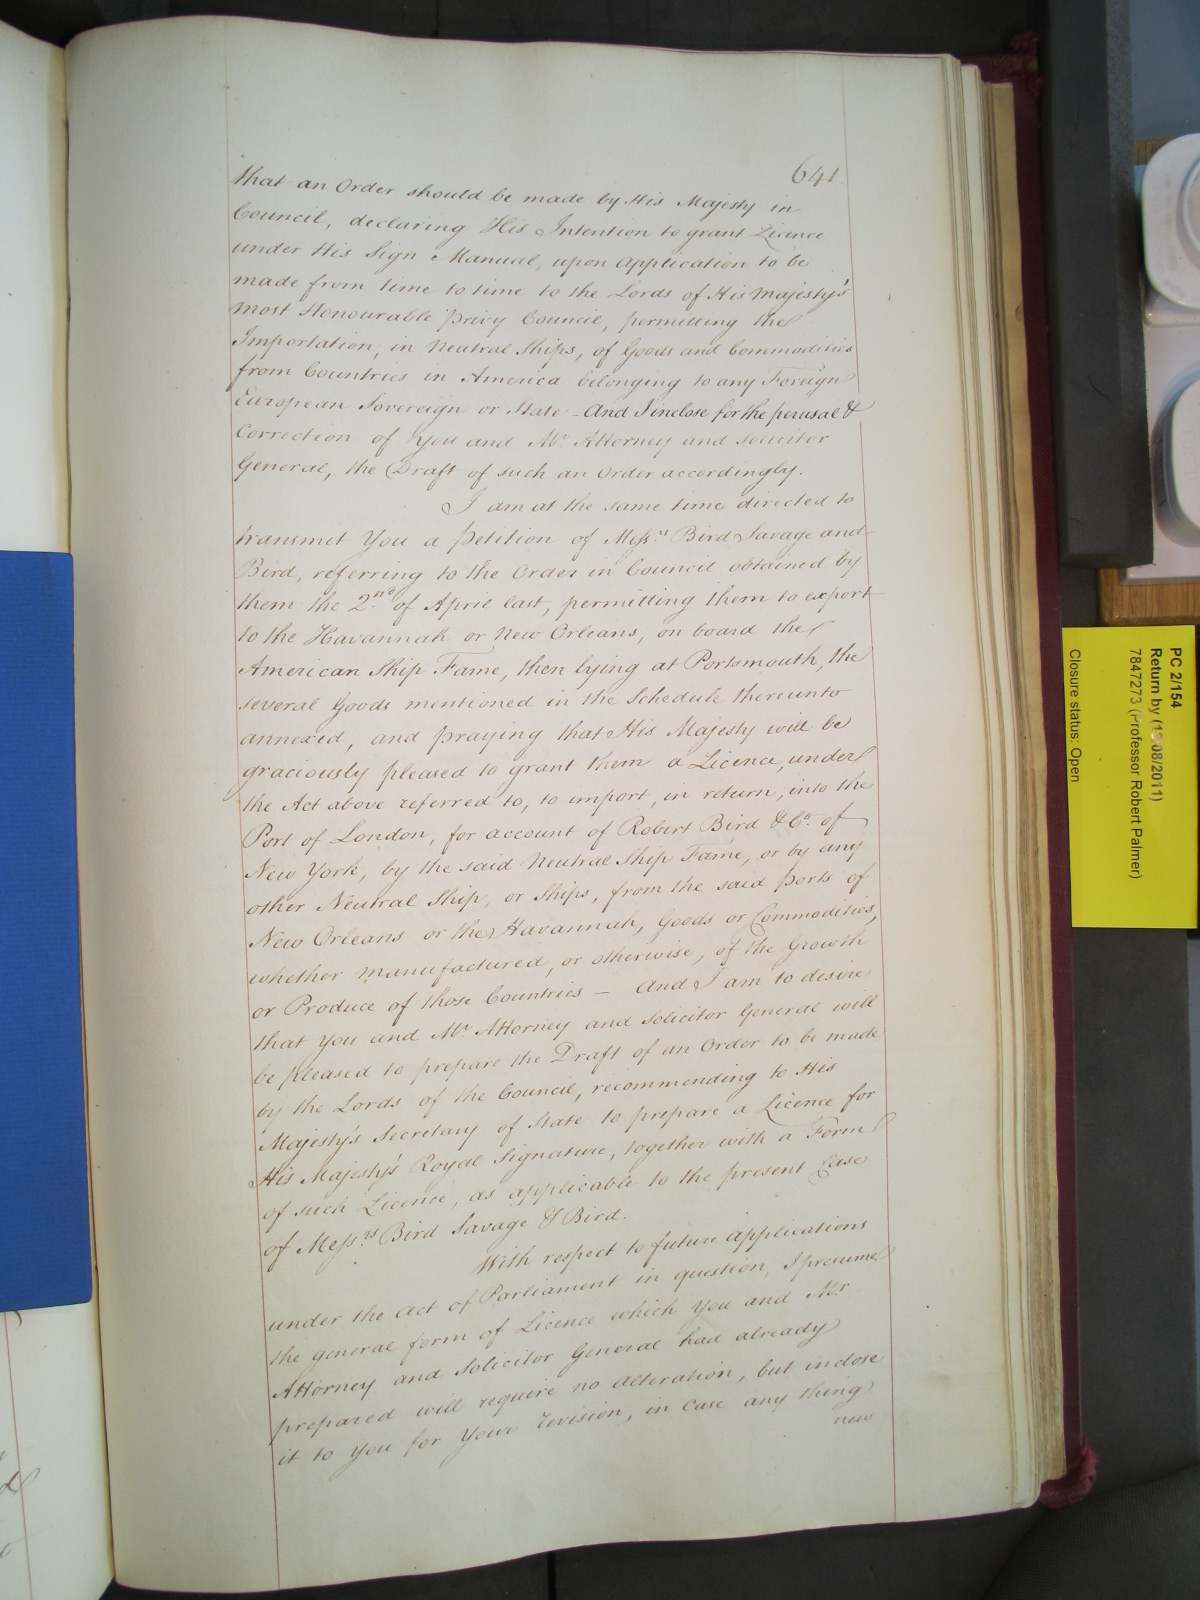 641.
that an Order should be made by His Majesty in
Council, declaring His Intention to grant Licence
under His Sign Manual, upon Application to be
made from time to time to the Lords of His Majesty's
most Honourable Privy Council, permitting the
Importation, in Neutral Ships, of Goods and Commodities
from Countries in America belonging to any Foreign
European Sovereign or State - And I inclose for the perusal &
Correction of You and Mr. Attorney and Solicitor
General, the Draft of such an Order accordingly.
I am at the same time directed to
transmit You a Petition of Messrs. Bird Savage and
Bird, referring to the Order in Council obtained by
them the 2nd. of April last, permitting them to export
to the Havannah or New Orleans, on board the
American Ship Fame, then lying at Portsmouth, the
several Goods mentioned in the Schedule thereunto
annexed, and praying that His Majesty will be
graciously pleased to grant them a Licence, under
the Act above referred to, to import, in return, into the
Port of London, for account of Robert Bird & Co. of
New York, by the said Neutral Ship Fame, or by any
other Neutral Ship, or Ships, from the said Ports of
New Orleans or the Havannah, Goods or Commodities,
whether manufactured, or otherwise, of the Growth
or Produce of those Countries - And I am to desire
that You and Mr. Attorney and Solicitor General will
be pleased to prepare the Draft of an Order to be made
by the Lords of the Council, recommending to His
Majesty's Secretary of State to prepare a Licence for
His Majesty's Royal Signature, together with a Form
of such Licence, as applicable to the present Case
of Messrs. Bird Savage & Bird.
With respect to future Applications
under the Act of Parliament in question, I presume
the general form of Licence which You and Mr.
Attorney and Solicitor General had already
prepared will require no alteration, but inclose
it to You for Your revision, in case any thing
new
PC 2/154
Return by (1 /08/2011)
7847273 (Professor Robert Palmer)
Closure status: Open